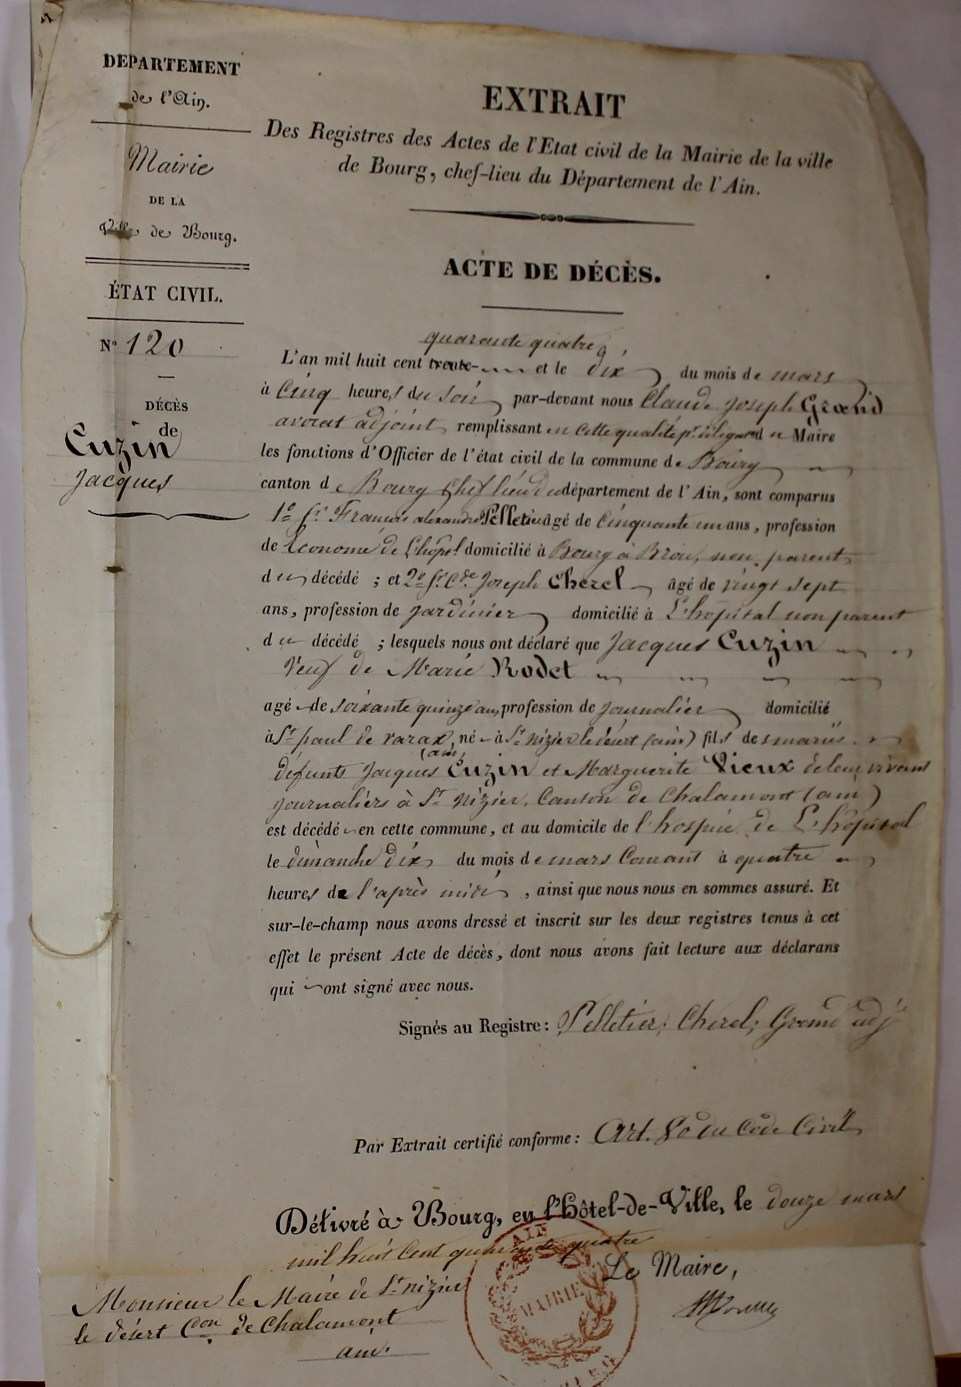 DEPARTEMENT
de l'Ain.
Mairie
DE LA
Ville de Bourg.
ÉTAT CIVIL.
N° 120
DÉCÈS
de
Cuzin
Jacques
EXTRAIT
Des Registres des Actes de l'Etat civil de la Mairie de la ville
de Bourg, chef-lieu du Département de l'Ain.
ACTE DE DÉCÈS.
quarante quatre
L'an mil huit cent trente- et le dix du mois de mars
à Cinq heures du soir par-devant nous Claude Joseph Grand
avocat adjoint remplissant en cette qualité pr. délégaon du Maire
les fonctions d'Officier de l'état civil de la commune de Bourg
canton de Bourg Chef lieu du département de l'Ain, sont comparus
1° Sr. Francois alexandre Pelletier agé de Cinquante un ans, profession
de Econome de l'hôpal domicilié à Bourg à Brou, non parent
du décédé ; et 2° Sr. Cde Joseph Cherel agé de vingt sept
ans, profession de jardinier domicilié à L'hôpital non parent
du décédé ; lesquels nous ont déclaré que Jacques Cuzin
Veuf de Marie Rodet
agé de soixante quinze ans, profession de journalier domicilié
à St. paul de varax, né à St. nizier le désert (ain) fils de mariés
(ain)
défunts Jacques Cuzin et Marguerite Vieux de leur vivant
journaliers à St. Nizier, Canton de Chalamont (ain)
est décédé en cette commune, et au domicile de l'hospice de L'hôpital
le dimanche dix du mois de mars Courant à quatre
heures de l'après midi, ainsi que nous nous en sommes assuré. Et
sur-le-champ nous avons dressé et inscrit sur les deux registres tenus à cet
effet le présent Acte de décès, dont nous avons fait lecture aux déclarans
qui ont signé avec nous.
Signés au Registre: Pelletier, Cherel, Grand adjt
Par Extrait certifié conforme: Art. 80 du Code Civil
Délivré à Bourg, en l'Hôtel-de-Ville, le douze mars
mil huit Cent quarante quatre
Le Maire,
Monsieur le Maire de St. nizier
le désert Con de Chalamont
ain.
AIN
MAIRIE